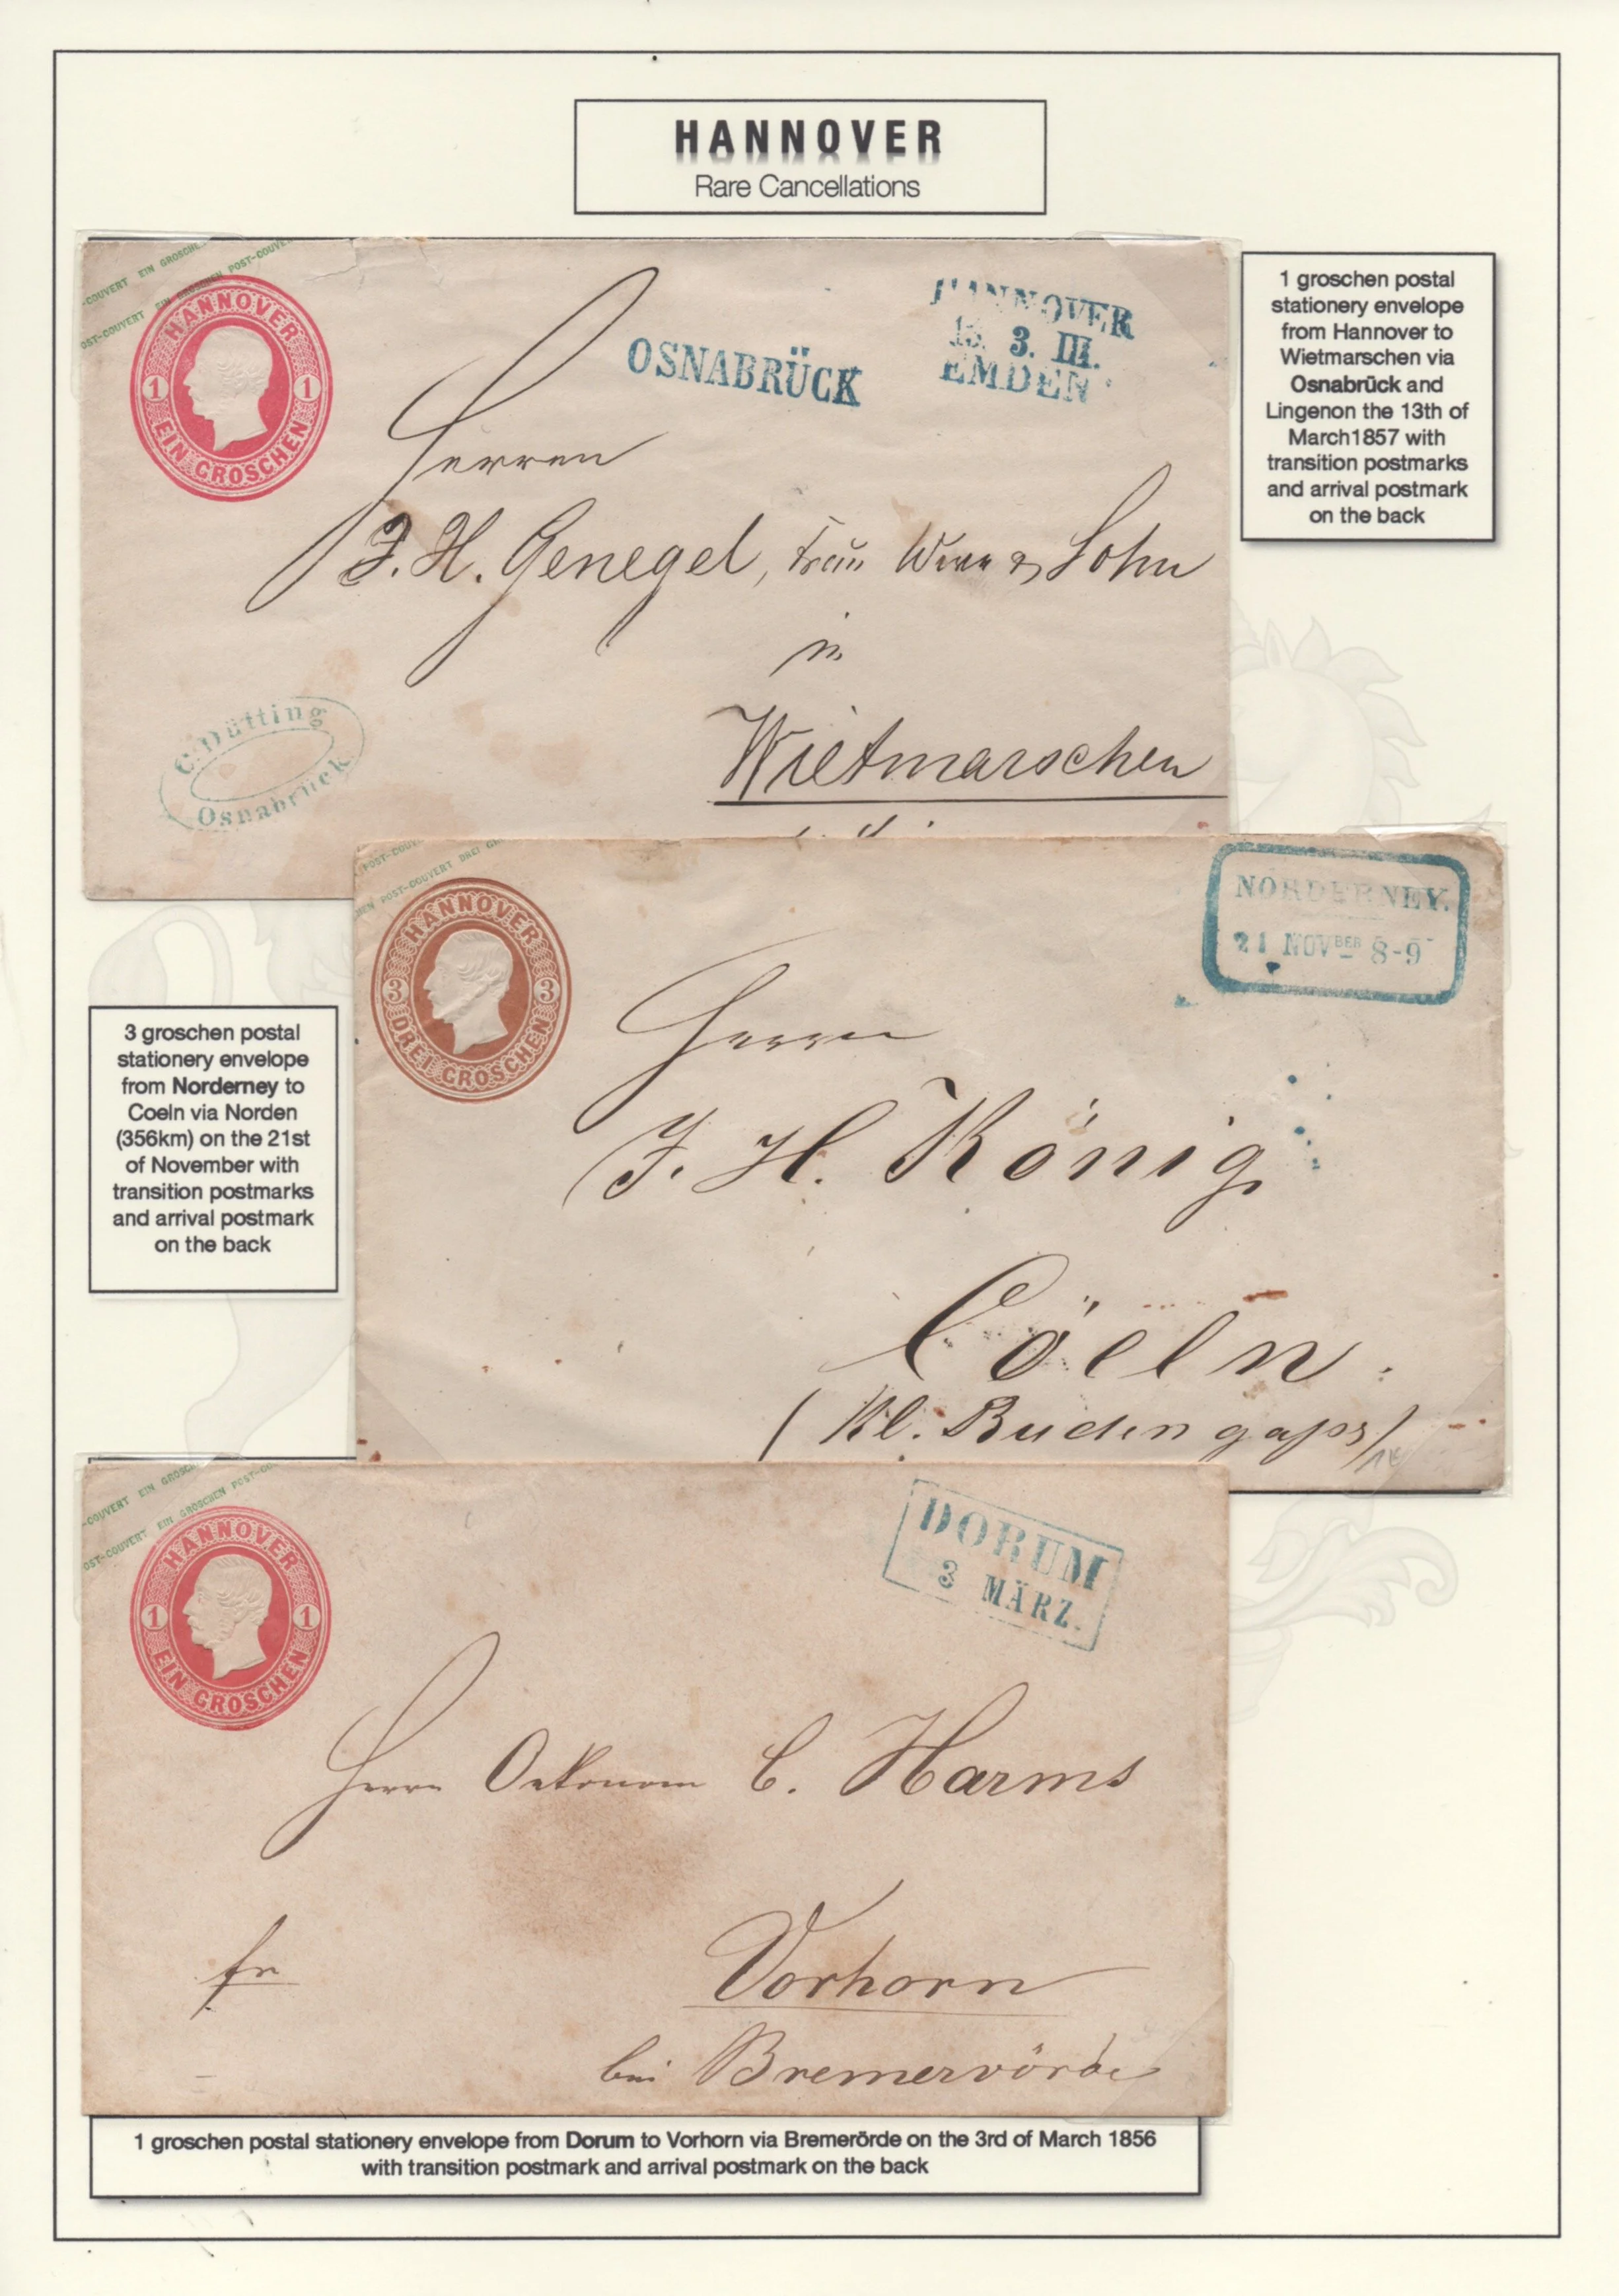 HANNOVER
Rare Cancellations
POST-COUVERT EIN GROSCHEN
POST-COUVERT EIN GROSCHEN POST-COUVERT
HANNOVER
1 1
EIN GROSCHEN
OSNABRÜCK
HANNOVER
13. 3. III.
EMDEN
1 groschen postal
stationery envelope
from Hannover to
Wietmarschen via
Osnabrück and
Lingenon the 13th of
March1857 with
transition postmarks
and arrival postmark
on the back
Herren
J. H. Genegel, Sohn
in
Wietmarschen
C. Dütting
Osnabrück
POST-COUVERT
POST-COUVERT DREI
HANNOVER
3 3
DREI GROSCHEN
NORDERNEY.
21 NOVBER 8-9
3 groschen postal
stationery envelope
from Norderney to
Coeln via Norden
(356km) on the 21st
of November with
transition postmarks
and arrival postmark
on the back
Herrn
J. H. König
Cöeln.
(Kl. Budengaſse)
COUVERT EIN GROSCHEN
POST-COUVERT EIN GROSCHEN POST-CO
HANNOVER
1 1
EIN GROSCHEN
DORUM
3 MÄRZ.
Herrn Oekonom C. Harms
fr
Vorhorn
bei Bremervörde
1 groschen postal stationery envelope from Dorum to Vorhorn via Bremerörde on the 3rd of March 1856
with transition postmark and arrival postmark on the back